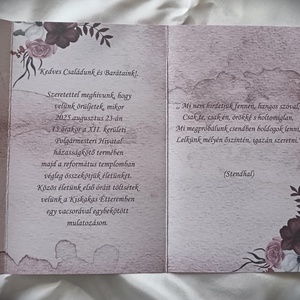 Kedves Családunk és Barátaink!
Szeretettel meghívunk, hogy
velünk örüljetek, mikor
2025 augusztus 23-án
13 órakor a XII. kerületi
Polgármesteri Hivatal
házasságkötő termében
majd a református templomban
végleg összekötjük életünket.
Közös életünk első óráit töltsétek
velünk a Kiskakas Étteremben
egy vacsorával egybekötött
mulatozáson.
,, Mi nem hirdetjük fennen, hangos szóval
Csak te, csak én, örökké s holtomiglan.
Mi megpróbálunk csendben boldogok lenni,
Lelkünk mélyén őszintén, igazán szeretni.
(Stendhal)